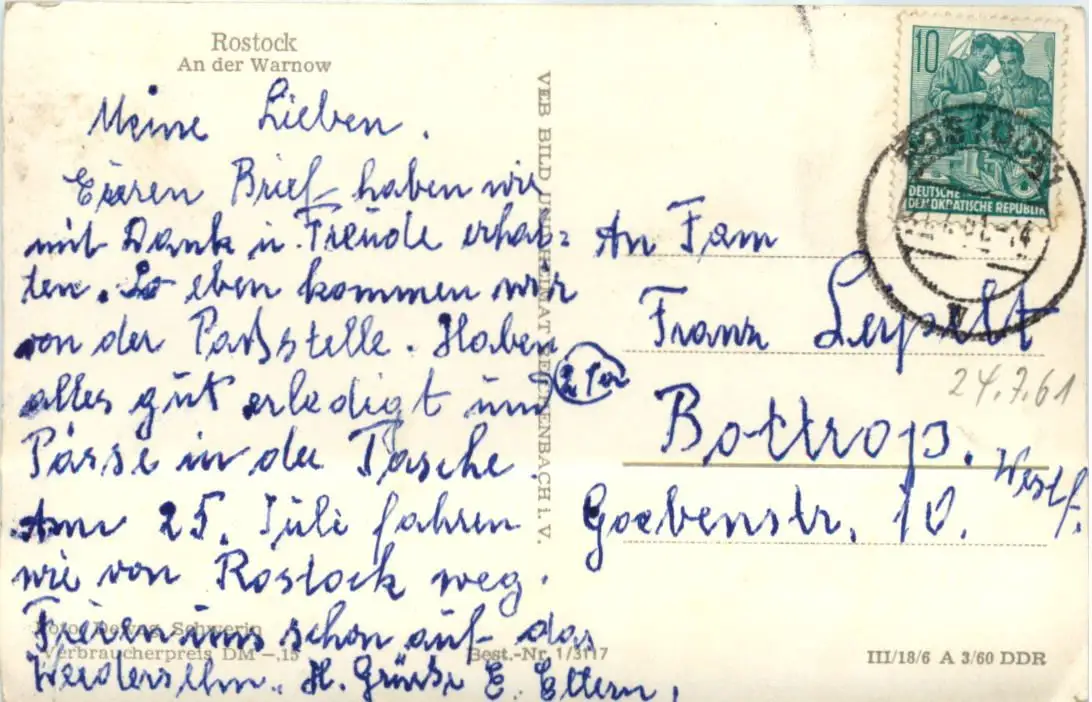 Rostock
An der Warnow
Meine Lieben.
Eueren Brief haben wir
mit Dank u. Freude erhal=
ten. So eben kommen wir
von der Paßstelle. Haben
alles gut erledigt und
Pässe in der Tasche.
Am 25. Juli fahren
wir von Rostock weg.
Freuen uns schon auf das
Wiedersehn. H. Grüße E. Eltern.
Schwerin
Verbraucherpreis DM -.15
Best.-Nr. 1/3117
VEB BILD UND HEIMAT REICHENBACH i. V.
10
DEUTSCHE
DEMOKRATISCHE REPUBLIK
ROSTOCK
An Fam
Franz
24.7.61
Bottrop.
Westf.
Goebenstr. 10.
III/18/6 A 3/60 DDR